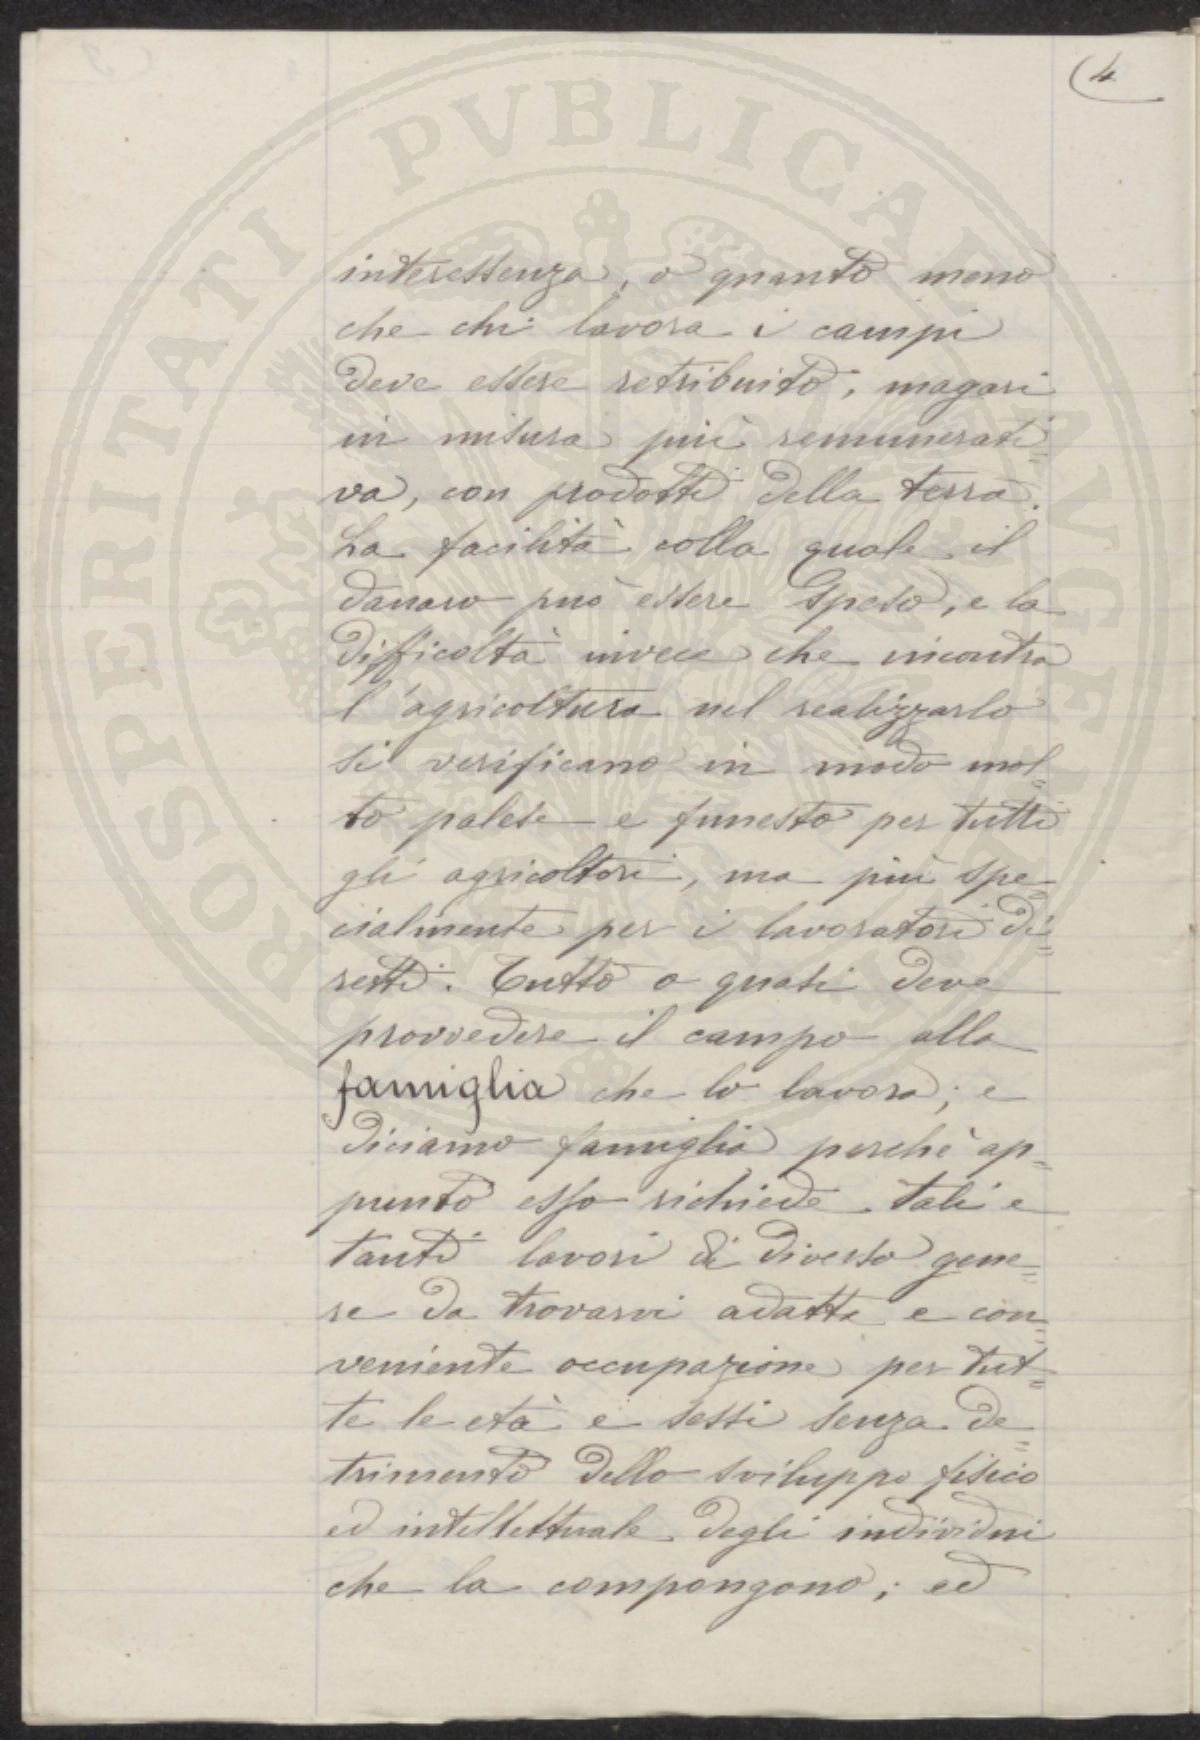 4
interessenza, o quanto meno
che chi lavora i campi
deve essere retribuito, magari
in misura più remunerati=
va, con prodotti della terra.
La facilità colla quale il
danaro può essere speso, e la
difficoltà invece che incontra
l'agricoltura nel realizzarlo
si verificano in modo mol=
to palese e funesto per tutti
gli agricoltori, ma più spe=
cialmente per i lavoratori di=
retti. Tutto o quasi deve
provvedere il campo alla
famiglia che lo lavora; e
diciamo famiglia perchè ap=
punto esso richiede tali e
tanti lavori di diverso gene=
re da trovarvi adatta e con=
veniente occupazione per tut=
te le età e sessi senza de=
trimento dello sviluppo fisico
ed intellettuale degli individui
che la compongono; ed
PROSPERITATI PVBLICAE AVGENDAE